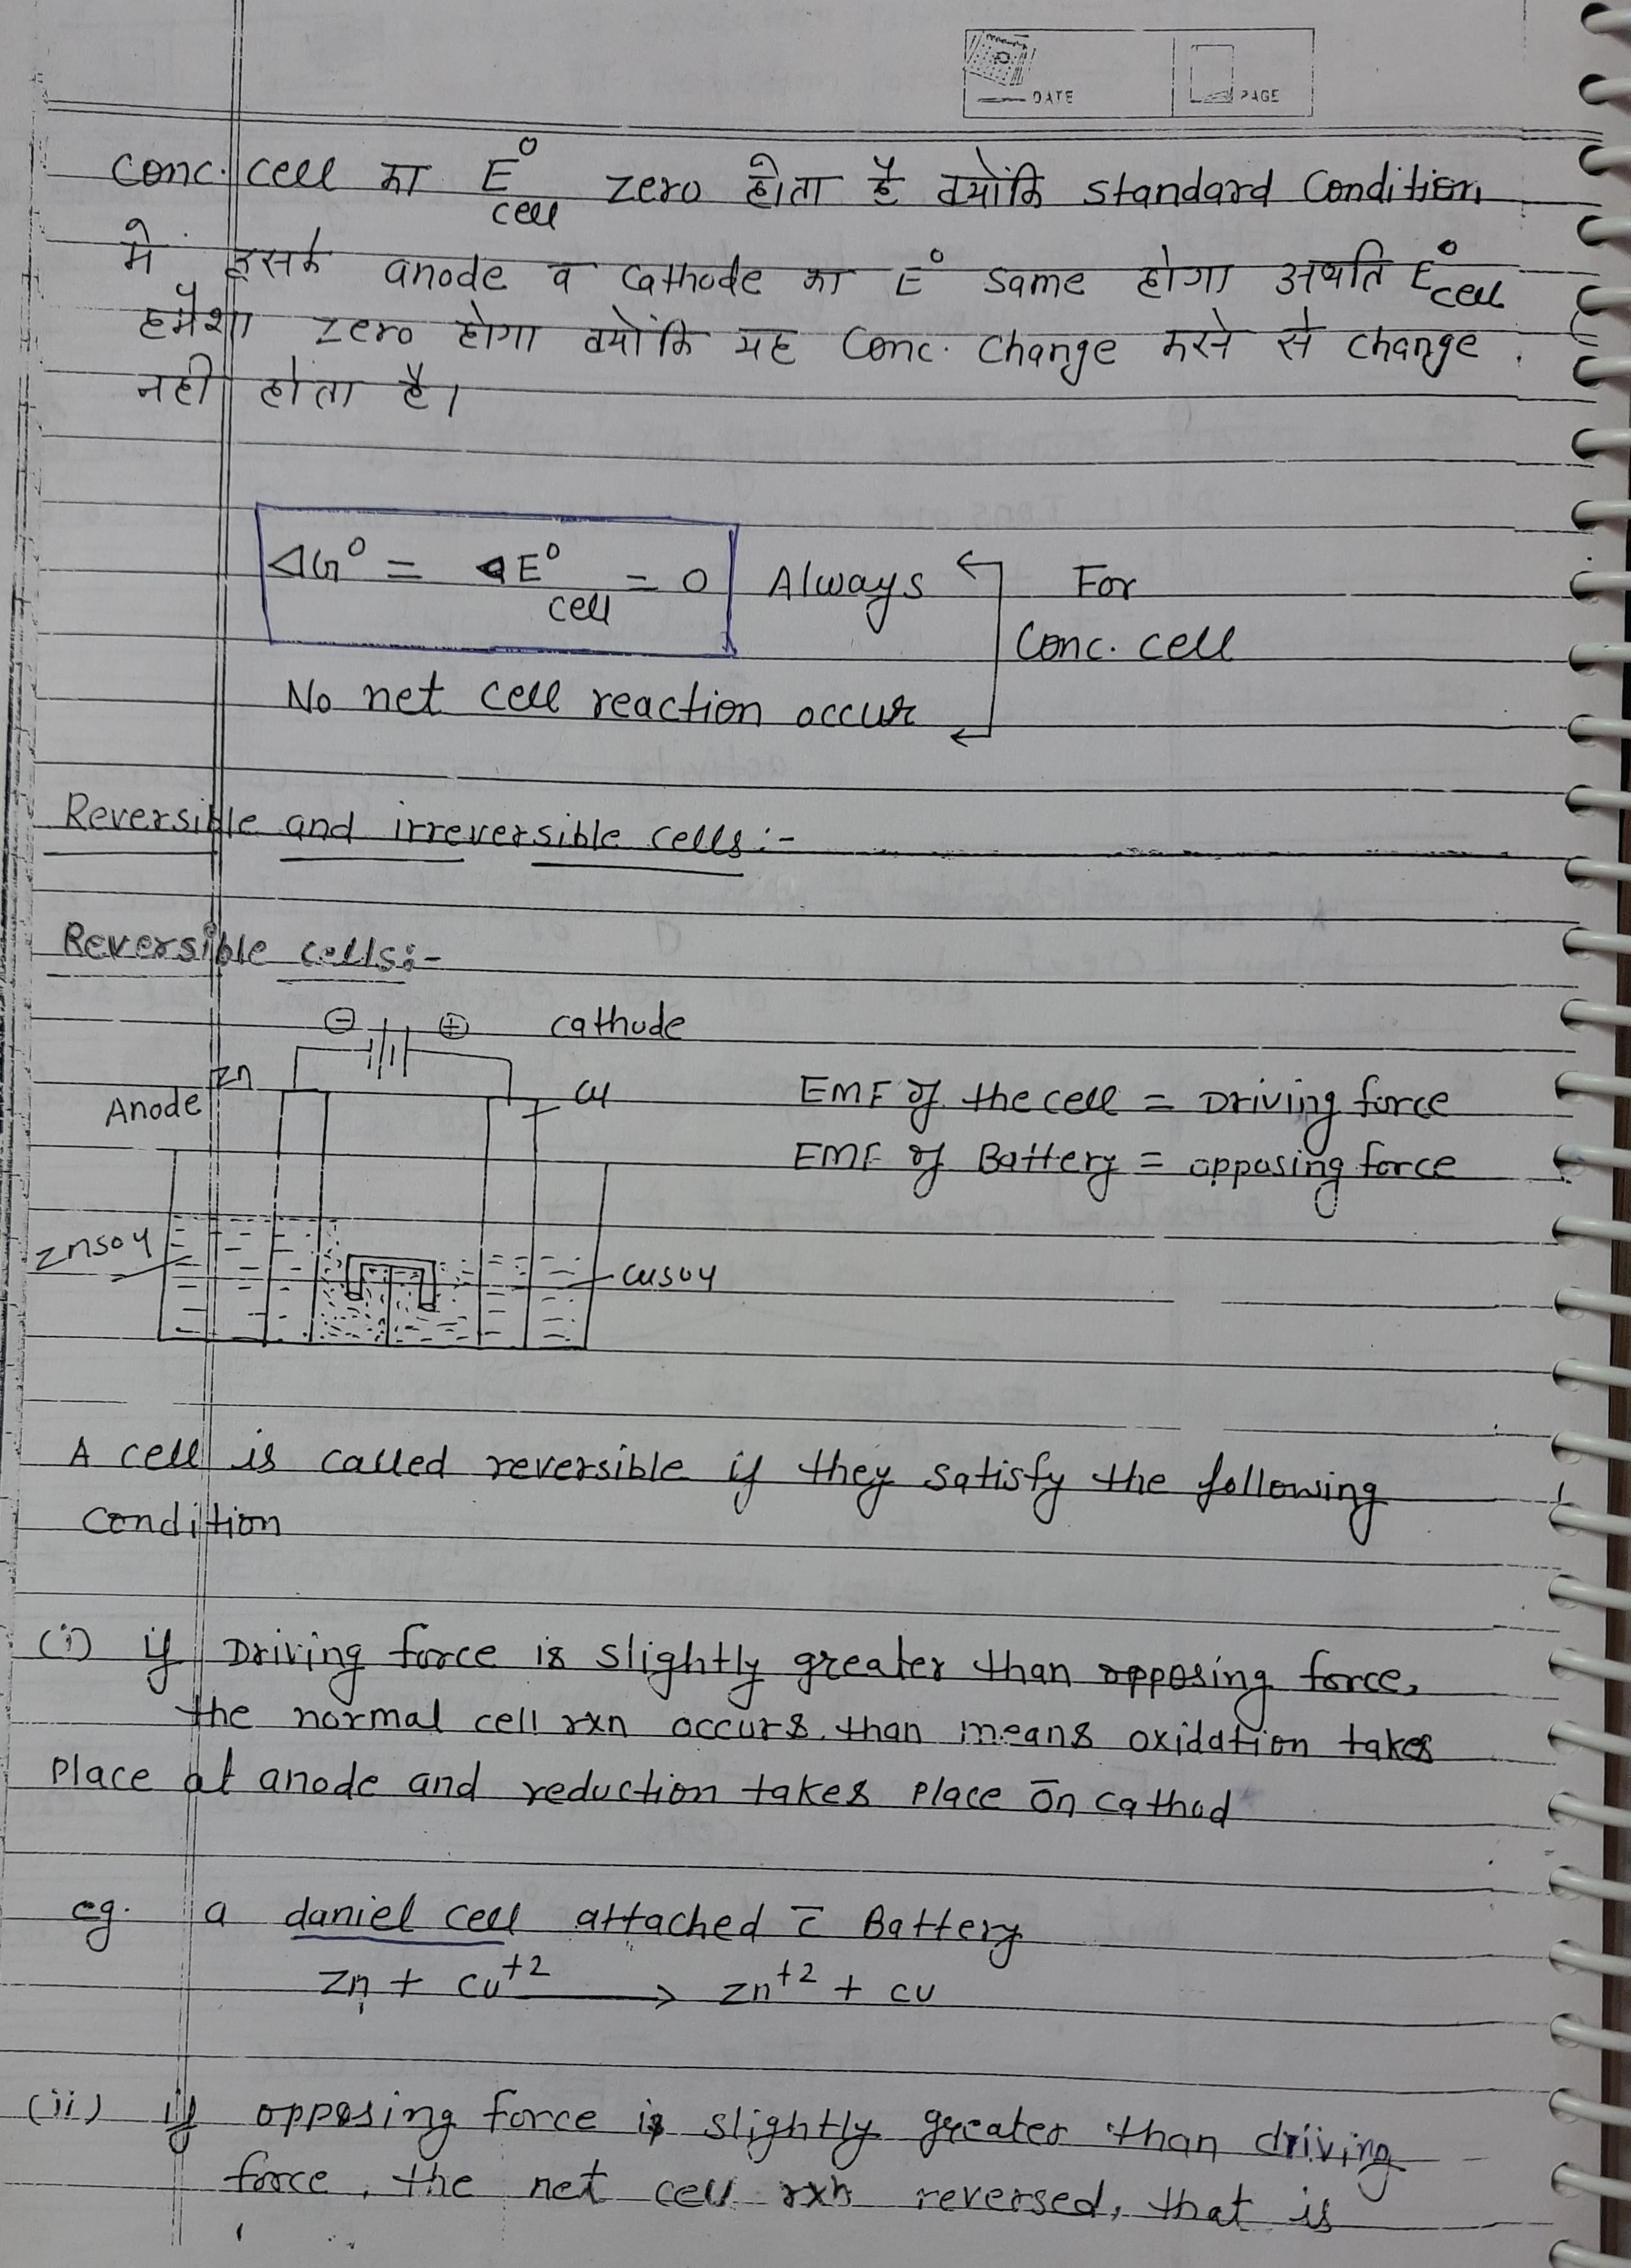 DATE
PAGE
Conc. cell का E°cell zero होता है क्योंकि standard Condition
मे इसके anode व Cathode का E° same होगा अर्थात E°cell
हमेशा zero होगा क्योंकि यह Conc. Change करने से change
नही होता है।
ΔG° = ΔE°cell = 0 Always For
Conc. cell
No net cell reaction occur
Reversible and irreversible cells:-
Reversible cells:-
⊖ ⊕ cathode
Zn
Anode
Cu
EMF of the cell = Driving force
EMF of Battery = opposing force
ZnSO4
CuSO4
A cell is called reversible if they satisfy the following
Condition
(i) if Driving force is slightly greater than opposing force,
the normal cell rxn occurs. than means oxidation takes
Place at anode and reduction takes place on cathod
eg. a daniel cell attached c̄ Battery
Zn + Cu+2 → Zn+2 + Cu
(ii) if opposing force is slightly greater than driving
force, the net cell rxn reversed, that is